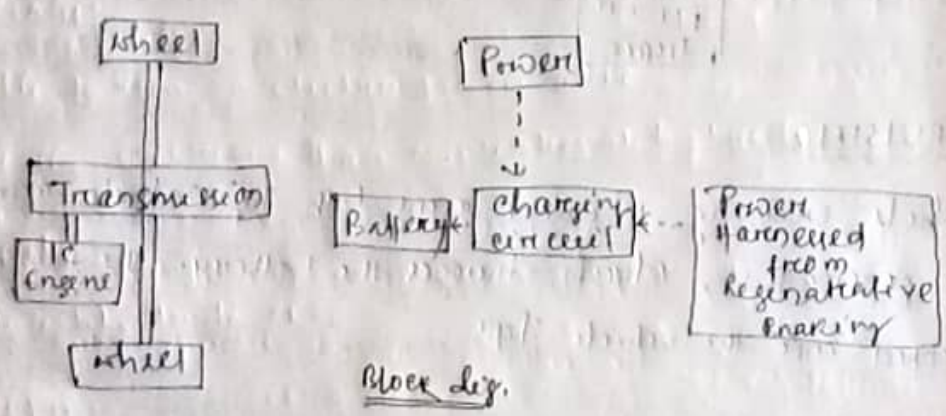 wheel
Power
Transmission
IC
Engine
wheel
Battery
charging
circuit
Power
Harnessed
from
Reginarative
Braking
Block dig.